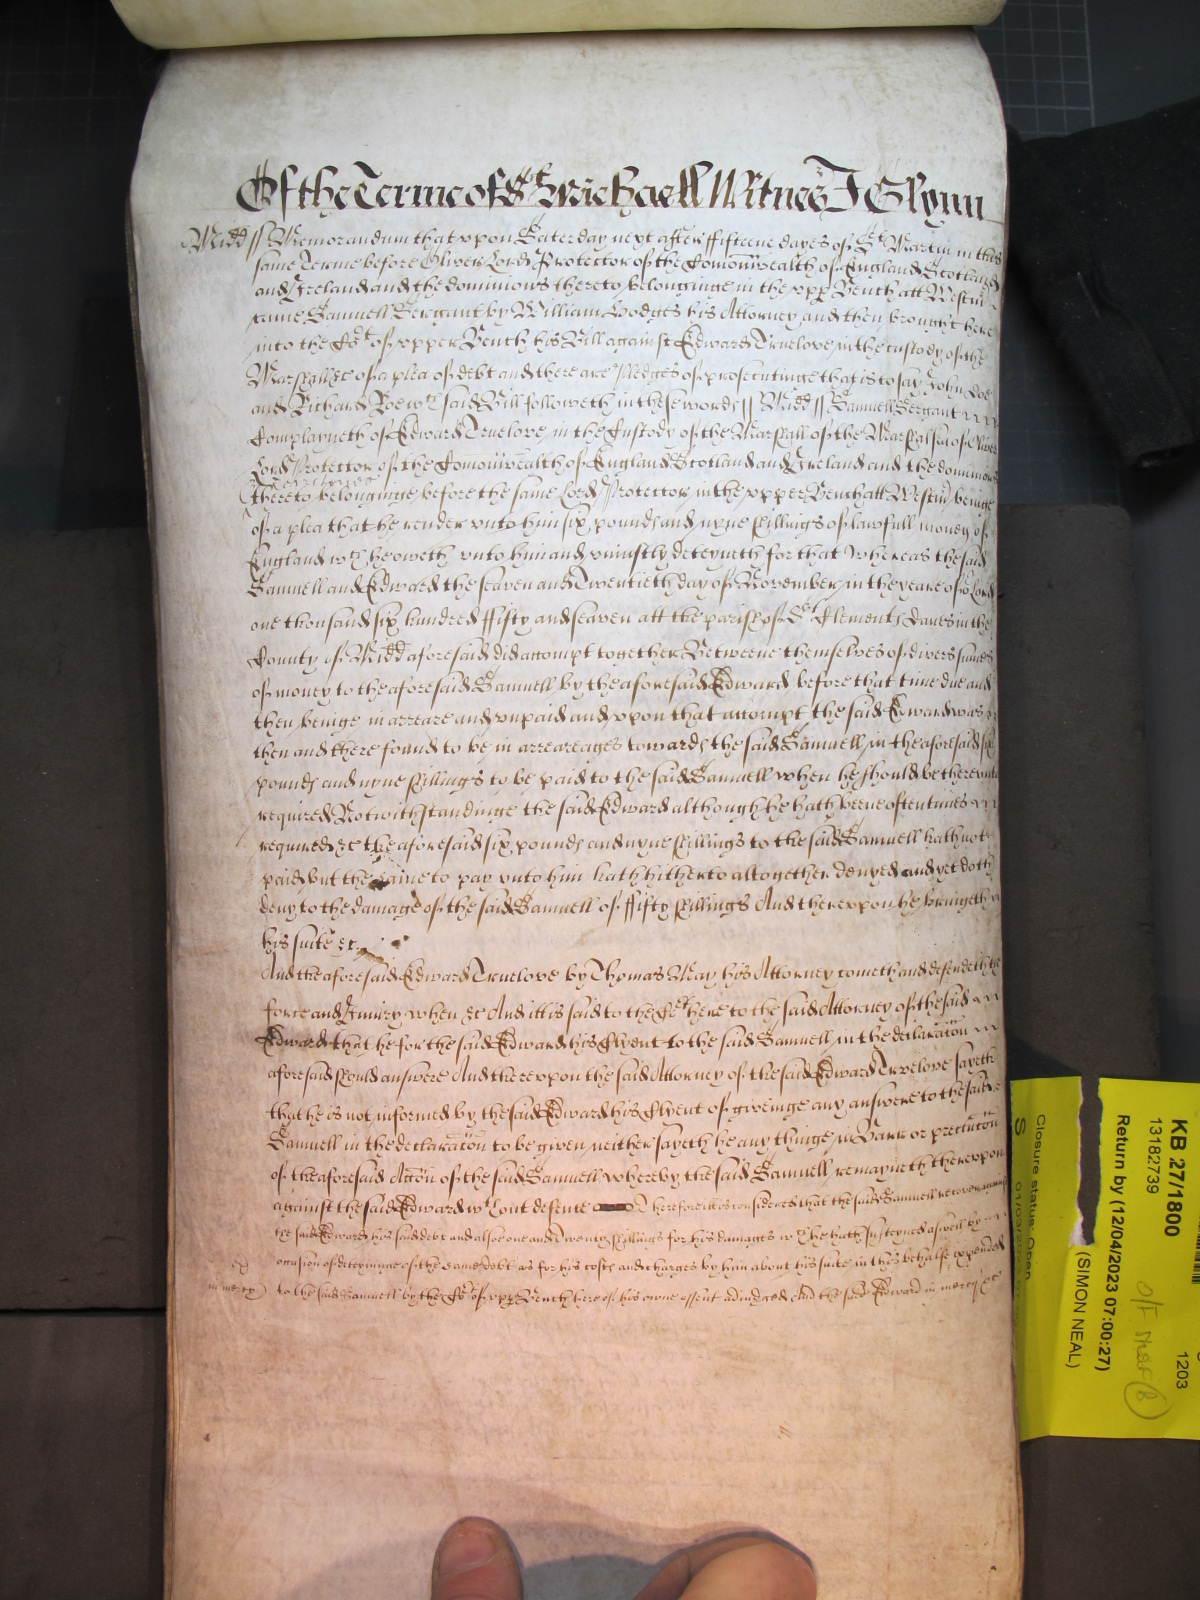 Of the Terme of St Michaell Witnes J Glynn
Midd // Memorandum that vpon Saterday next after fifteene dayes of St Martin in this
same Terme before Oliver Lord Protector of the Comonwealth of England Scotland
and Ireland and the dominions thereto belonginge in the vpp Bench att Westm
came Samuell Sergant by William Hodges his Attorney and then brought here
into the Cot of vpper Bench his Bill against Edward Truelove in the custody of the
Marshall &c of a plea of debt and there are Pledges of prosecutinge that is to say John Doe
and Richard Roe wch said Bill followeth in these words // Midd // Samuell Sergant
Complayneth of Edward Truelove in the Custody of the Marshall of the Marshalsea of Oliver
Lord Protector of the Comonwealth of England Scotland and Ireland and the dominions
thereto belonginge before the same Lord Protector in the vpper Bench att Westm beinge
of a plea that he render vnto him six pounds and nyne shillings of lawfull money of
England wch he oweth vnto him and vniustly deteyneth for that Whereas the said
Samuell and Edward the seaven and Twentieth day of November in the yeare of or Lord
one thousand six hundred fifty and seaven att the parish of St Clement Danes in the
County of Midd aforesaid did accompt together Betweene themselves of divers summes
of money to the aforesaid Samuell by the aforesaid Edward before that time due and
then beinge in arreare and vnpaid and vpon that accompt the said Edward was
then and there found to be in arrearages towards the said Samuell in the aforesaid six
pounds and nyne shillings to be paid to the said Samuell when he should be therevnto
required Notwithstandinge the said Edward although he hath beene oftentimes
required &c the aforesaid six pounds and nyne shillings to the said Samuell hath not
paid but the same to pay vnto him hath hitherto altogether denyed and yet doth
deny to the damage of the said Samuell of fifty shillings And therevpon he bringeth
his suite &c
And the aforesaid Edward Truelove by Thomas May his Attorney cometh and defendeth the
force and Iniury when &c And itt is said to the Cot here to the said Attorney of the said
Edward that he for the said Edward his Clyent to the said Samuell in the declaracon
aforesaid should answere And therevpon the said Attorney of the said Edward Truelove sayeth
that he is not informed by the said Edward his Clyent of giveinge any answere to the said
Samuell in the declaracon to be given neither sayeth he any thinge in Barr or preclucon
of the aforesaid Accon of the said Samuell whereby the said Samuell remayneth therevpon
against the said Edward wthout defence Therefore itt is considered that the said Samuell recover against
the said Edward his said debt and alsoe one and Twenty shillings for his damages wch he hath susteyned aswell by
occasion of deteyninge of the same debt as for his costs and charges by him about his suite in this behalfe expended
in mercy to the said Samuell by the Cot of vpp Bench here of his owne assent adiudged And the said Edward in mercy &c
KB 27/1800
13182739
Return by (12/04/2023 07:00:27)
(SIMON NEAL)
Closure status: Open
S
1203